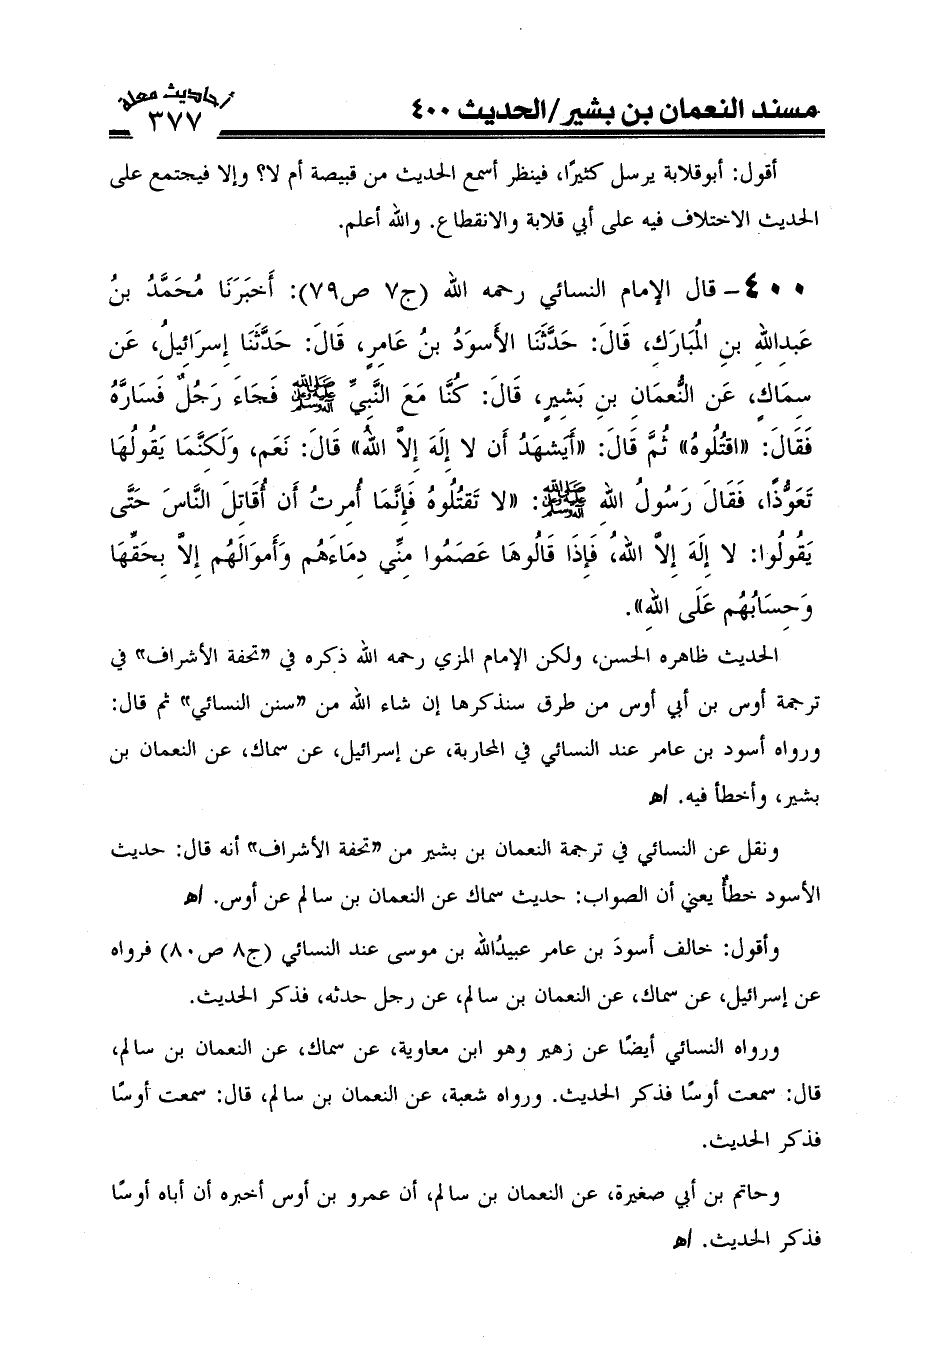 أحاديث معلة
٣٧٧
مسند النعمان بن بشير/الحديث ٤٠٠
أقول: أبوقلابة يرسل كثيرًا، فينظر أسمع الحديث من قبيصة أم لا؟ وإلا فيجتمع على
الحديث الاختلاف فيه على أبي قلابة والانقطاع. والله أعلم.
٤٠٠- قال الإمام النسائي رحمه الله (ج٧ ص٧٩): أَخبَرَنَا مُحَمَّدُ بنُ
عَبدِاللهِ بنِ المُبَارَكِ، قَالَ: حَدَّثَنَا الأَسوَدُ بنُ عَامِرٍ، قَالَ: حَدَّثَنَا إِسرَائِيلُ، عَن
سِمَاكٍ، عَن النُّعمَانِ بنِ بَشِيرٍ، قَالَ: كُنَّا مَعَ النَّبِيِّ ﷺ فَجَاءَ رَجُلٌ فَسَارَّهُ
فَقَالَ: «اقتُلُوهُ» ثُمَّ قَالَ: «أَيَشهَدُ أَن لا إِلَهَ إِلاَّ اللهُ» قَالَ: نَعَم، وَلَكِنَّمَا يَقُولُهَا
تَعَوُّذًا، فَقَالَ رَسُولُ اللهِ ﷺ: «لا تَقتُلُوهُ فَإِنَّمَا أُمِرتُ أَن أُقَاتِلَ النَّاسَ حَتَّى
يَقُولُوا: لا إِلَهَ إِلاَّ اللهُ، فَإِذَا قَالُوهَا عَصَمُوا مِنِّي دِمَاءَهُم وَأَموَالَهُم إِلاَّ بِحَقِّهَا
وَحِسَابُهُم عَلَى اللهِ».
الحديث ظاهره الحسن، ولكن الإمام المزي رحمه الله ذكره في «تحفة الأشراف» في
ترجمة أوس بن أبي أوس من طرق سنذكرها إن شاء الله من «سنن النسائي» ثم قال:
ورواه أسود بن عامر عند النسائي في المحاربة، عن إسرائيل، عن سماك، عن النعمان بن
بشير، وأخطأ فيه. اﻫ
ونقل عن النسائي في ترجمة النعمان بن بشير من «تحفة الأشراف» أنه قال: حديث
الأسود خطأٌ يعني أن الصواب: حديث سماك عن النعمان بن سالم عن أوس. اﻫ
وأقول: خالف أسودَ بن عامر عبيدُالله بن موسى عند النسائي (ج٨ ص٨٠) فرواه
عن إسرائيل، عن سماك، عن النعمان بن سالم، عن رجل حدثه، فذكر الحديث.
ورواه النسائي أيضًا عن زهير وهو ابن معاوية، عن سماك، عن النعمان بن سالم،
قال: سمعت أوسًا فذكر الحديث. ورواه شعبة، عن النعمان بن سالم، قال: سمعت أوسًا
فذكر الحديث.
وحاتم بن أبي صغيرة، عن النعمان بن سالم، أن عمرو بن أوس أخبره أن أباه أوسًا
فذكر الحديث. اﻫ